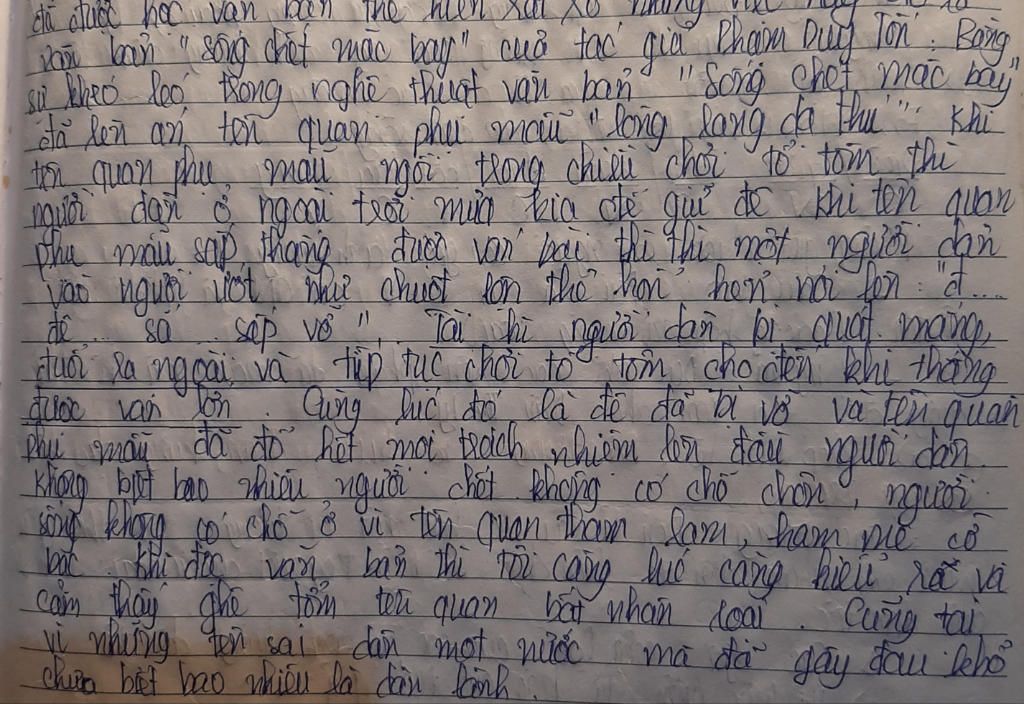 đã được học văn bản thể hiện xấu xa những việc này
văn bản "sống chết mặc bay" cuả tác giả Phạm Duy Tốn. Bằng
sự khéo léo, trong nghệ thuật văn bản "Sống chết mặc bay"
đã lên án tên quan phụ mẫu "lòng lang dạ thú". Khi
tên quan phụ mẫu ngồi trong chiếu chơi tổ tôm thì
người dân ở ngoài trời mưa kia để giữ đê. Khi tên quan
phụ mẫu sắp thắng được ván bài thì thì một người dân
vào người ướt như chuột lột thở hổn hển nói lớn: "đ....
đê... sắ... sắp vỡ", Tài thì người dân bị quát mắng,
đuổi ra ngoài và tiếp tục chơi tổ tôm cho đến khi thắng
được ván lớn. Cùng lúc đó là đê đã bị vỡ và tên quan
phụ mẫu đã đổ hết mọi trách nhiệm lên đầu người dân.
không biết bao nhiêu người chết không có chỗ chôn, người
sống không có chỗ ở vì tên quan tham lam, ham mê cờ
bạc. Khi đọc văn bản thì tôi càng lúc càng hiểu rõ và
cảm thấy ghê tởm tên quan bất nhân loại. Cũng tại
vì những tên sai dân một nước mà đã gây đau khổ
chưa biết bao nhiêu là dân lành.